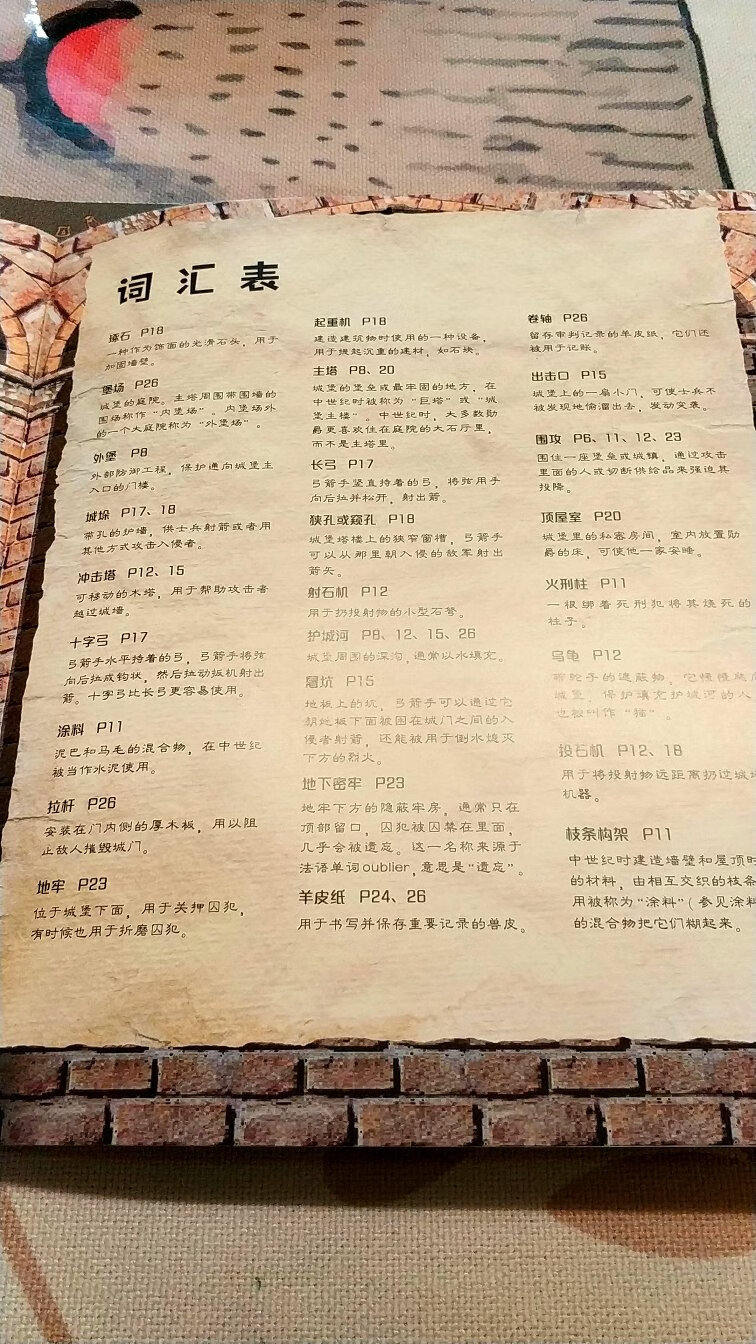 词汇表
琢石 P18
一种作为饰面的光滑石头，用于
加固墙壁。
堡场 P26
城堡的庭院。主塔周围带围墙的
围场称作“内堡场”。内堡场外
的一个大庭院称为“外堡场”。
外堡 P8
外部防御工程，保护通向城堡主
入口的门楼。
城垛 P17、18
带孔的护墙，供士兵射箭或者用
其他方式攻击入侵者。
冲击塔 P12、15
可移动的木塔，用于帮助攻击者
越过城墙。
十字弓 P17
弓箭手水平持着的弓，弓箭手将弦
向后拉成钩状，然后拉动扳机射出
箭。十字弓比长弓更容易使用。
涂料 P11
泥巴和马毛的混合物，在中世纪
被当作水泥使用。
拉杆 P26
安装在门内侧的厚木板，用以阻
止敌人摧毁城门。
地牢 P23
位于城堡下面，用于关押囚犯，
有时候也用于折磨囚犯。
起重机 P18
建造建筑物时使用的一种设备，
用于提起沉重的建材，如石块。
主塔 P8、20
城堡的堡垒或最牢固的地方，在
中世纪时被称为“巨塔”或“城
堡主楼”。中世纪时，大多数勋
爵更喜欢住在庭院的大石厅里，
而不是主塔里。
长弓 P17
弓箭手竖直持着的弓，将弦用手
向后拉并松开，射出箭。
狭孔或窥孔 P18
城堡塔楼上的狭窄窗槽，弓箭手
可以从那里朝入侵的敌军射出
箭矢。
射石机 P12
用于扔投射物的小型石弩。
护城河 P8、12、15、26
城堡周围的深沟，通常以水填充。
屠坑 P15
地板上的坑，弓箭手可以通过它
朝地板下面被困在城门之间的入
侵者射箭，还能被用于倒水熄灭
下方的烈火。
地下密牢 P23
地牢下方的隐蔽牢房，通常只在
顶部留口，囚犯被囚禁在里面，
几乎会被遗忘。这一名称来源于
法语单词oublier，意思是“遗忘”。
羊皮纸 P24、26
用于书写并保存重要记录的兽皮。
卷轴 P26
留存审判记录的羊皮纸，它们还
被用于记账。
出击口 P15
城堡上的一扇小门，可使士兵不
被发现地偷溜出去，发动突袭。
围攻 P6、11、12、23
围住一座堡垒或城镇，通过攻击
里面的人或切断供给品来强迫其
投降。
顶屋室 P20
城堡里的私密房间，室内放置勋
爵的床，可使他一家安睡。
火刑柱 P11
一根绑着死刑犯将其烧死的
柱子。
乌龟 P12
带轮子的遮蔽物，它慢慢
城堡，保护填充护城河的人
也被叫作“猫”。
投石机 P12、18
用于将投射物远距离扔过城
机器。
枝条构架 P11
中世纪时建造墙壁和屋顶时
的材料，由相互交织的枝条
用被称为“涂料”（参见涂料
的混合物把它们糊起来。